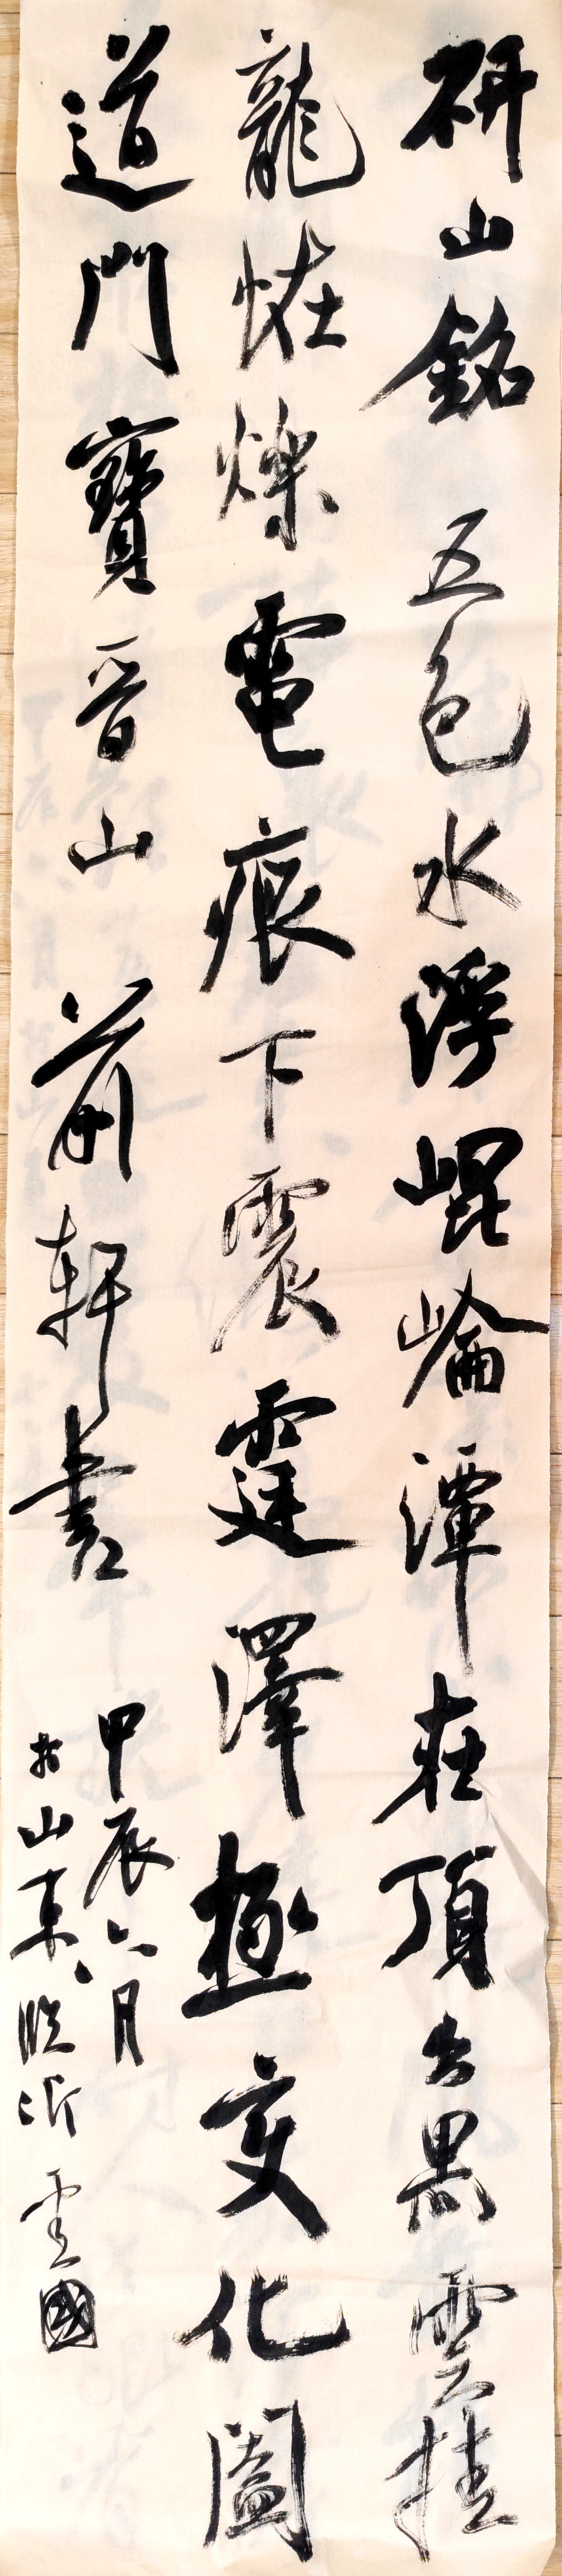 研山銘 五色水浮崐崘潭在頂出黒雲挂
龍恠爍電痕下震霆澤極變化闔
道門寶晉山前軒書
甲辰六月
於山東臨沂 雲國